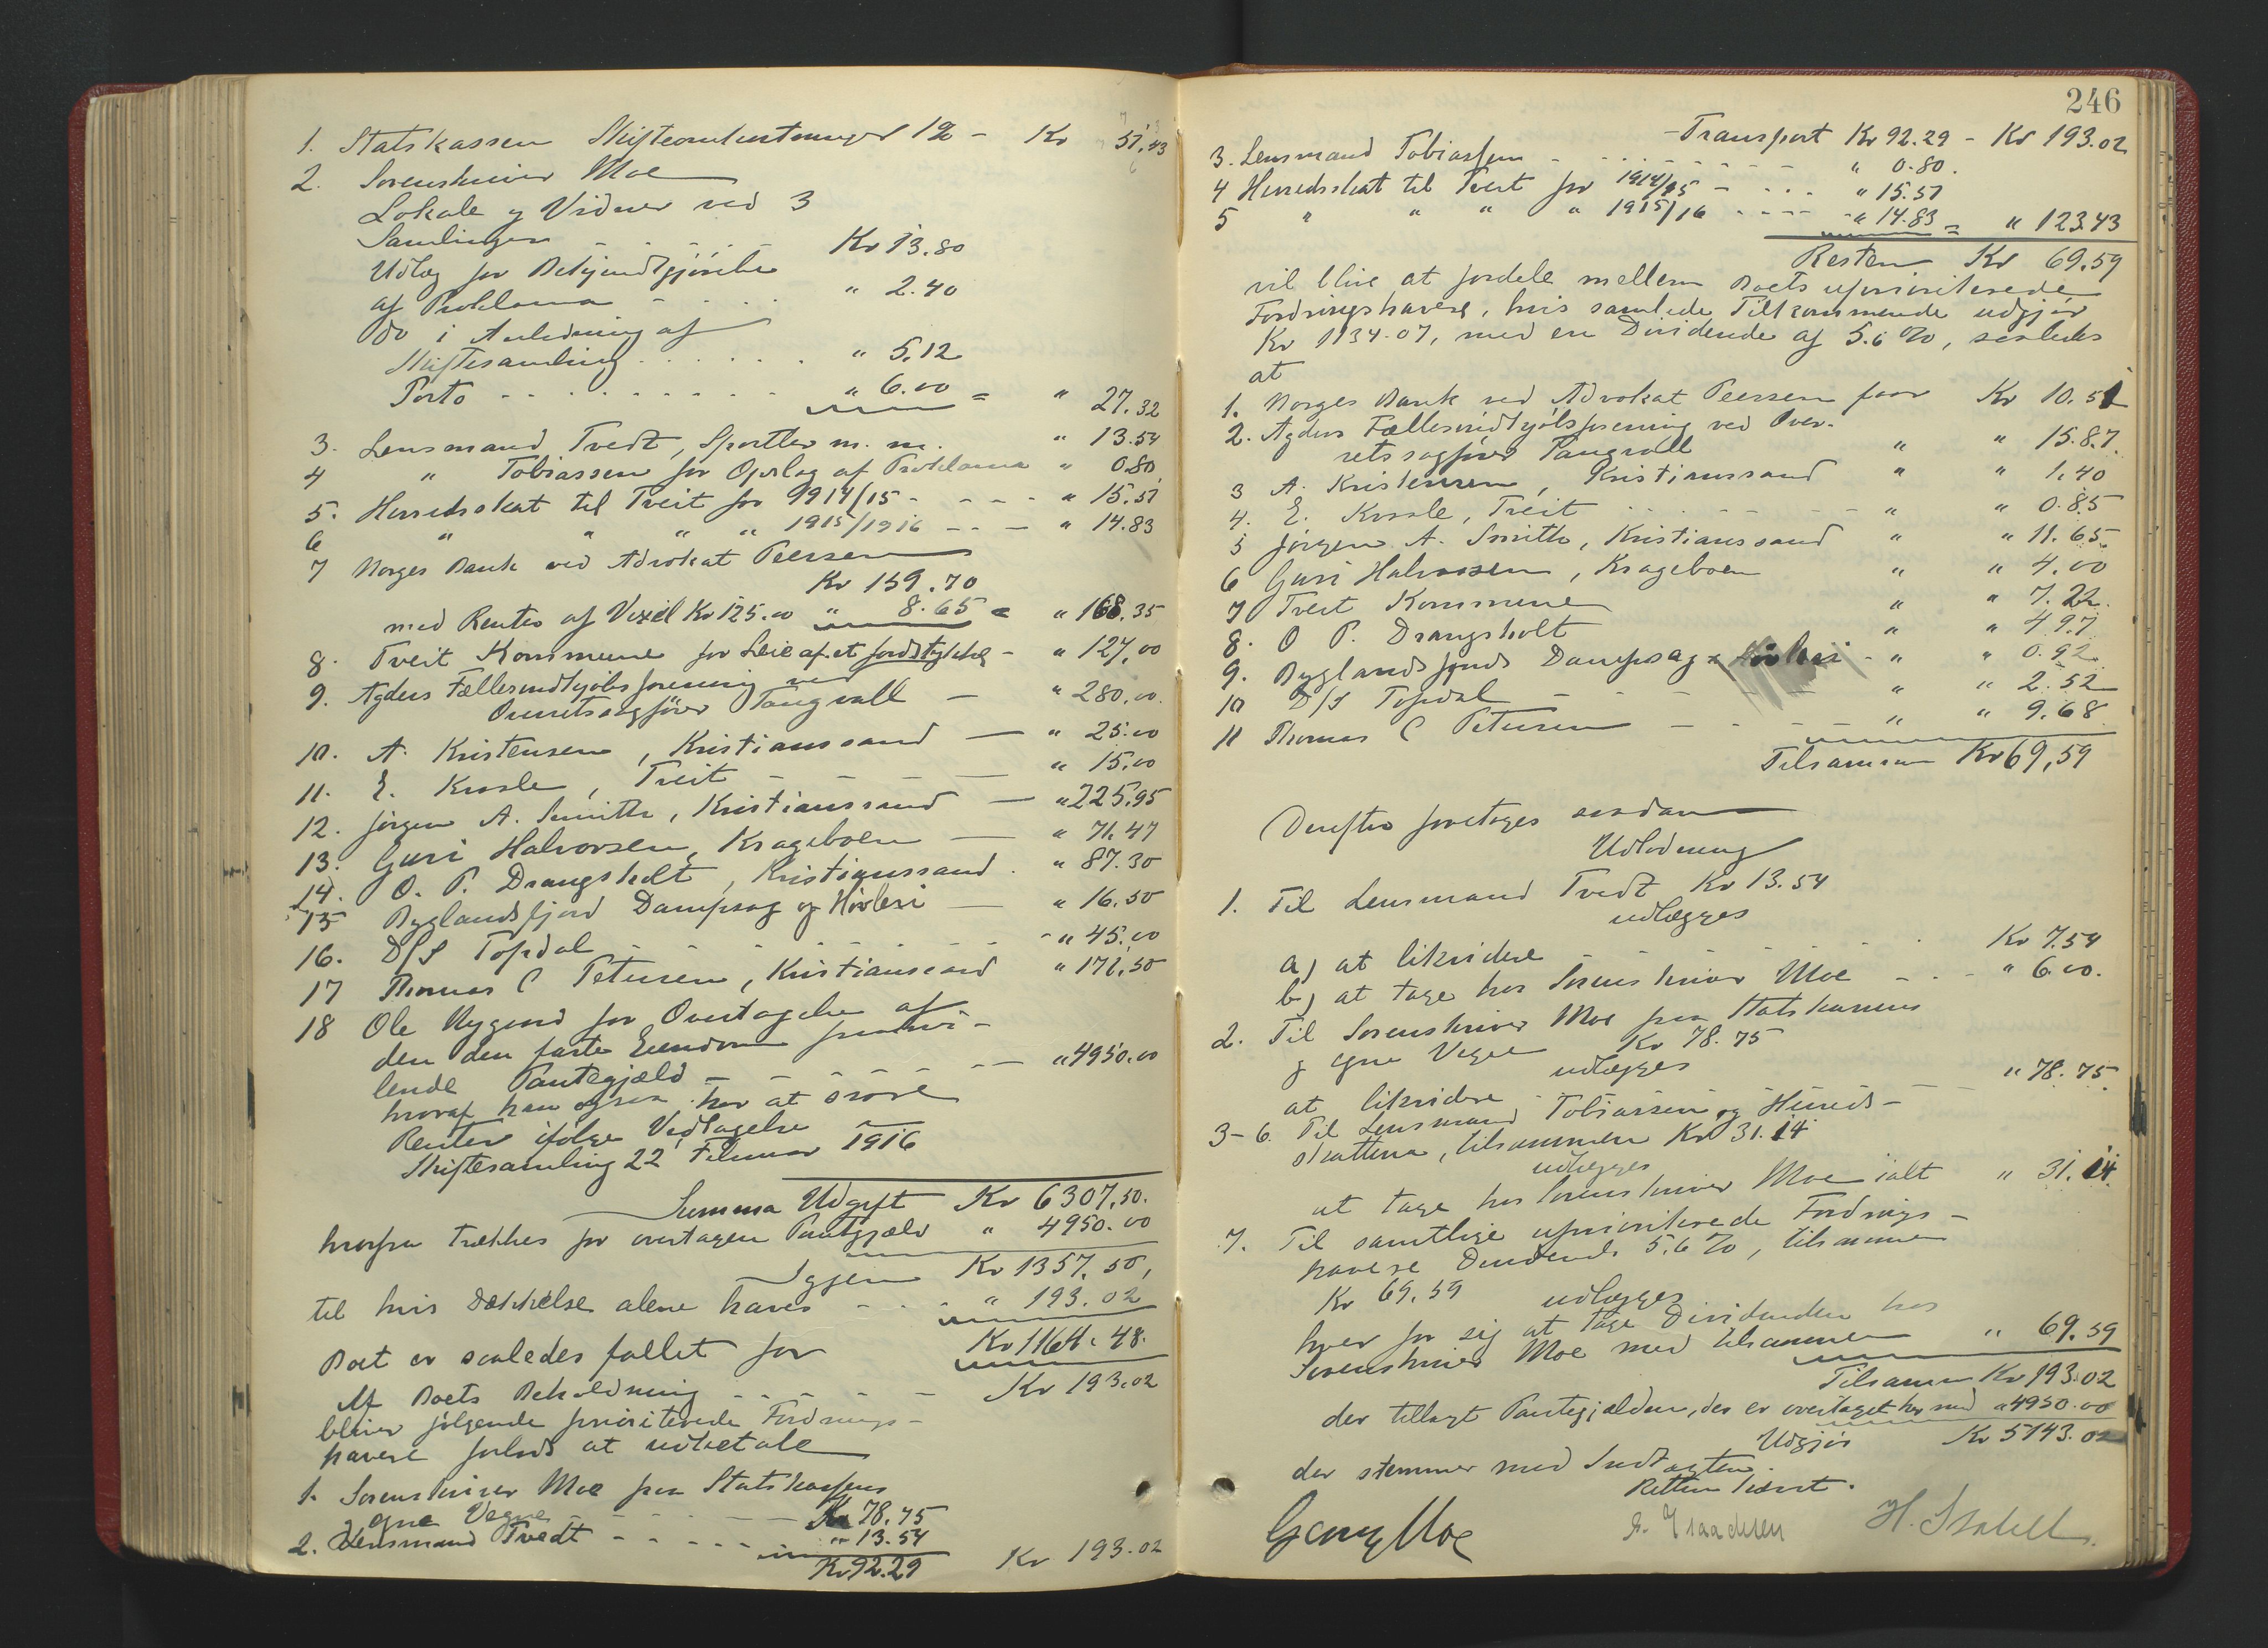 1. Statskassen Skifteomkostninger 1% - Kr 51,43
2. Sorenskriver Moe
Lokale og Vidner ved 3
Samlinger - - - - - Kr 13.80
Udlæg for Bekjendtgjörelse
af Proklama - - - - " 2.40
Do i Anledning af
Skiftesamling . . . . . . " 5.12
Porto - - - - - - - - - " 6.00 = " 27.32
3. Lensmand Tvedt, Sportler m. m. " 13.54
4 " Tobiassen for Opslag af Proklama " 0.80
5. Herredsskat til Tveit for 1914/15 - - - - " 15.51
6 " " " " 1915/1916 - - - " 14.83
7 Norges Bank ved Advokat Peersen
Kr 159.70
med Renter af Vexel Kr 125.00 " 8.65 = " 168.35
8. Tveit Kommune for Leie af et jordstykke - " 127.00
9. Agders Fællesindkjöbsforening ved
Overretssagförer Tangvall - " 280.00
10. A. Kristensen, Kristianssand - " 25.00
11. E. Kvasle, Tveit - - - - " 15.00
12. Jörgen A. Smith, Kristianssand - " 225.95
13. Guri Halvorsen, Krageboen - " 71.47
14. O. P. Drangsholt, Kristianssand . " 87.30
15 Byglandsfjord Dampsag og Hövleri - " 16.50
16. D/S Topdal - - - - - - " 45.00
17 Thomas C Petersen, Kristianssand " 171.50
18 Ole Nygend for Overtagelse af
den den faste Eiendom paahvi-
lende Pantegjæld - - - - - " 4950.00
hvoraf han ogsaa har at svare
Renter ifølge Vedtagelse
Skiftesamling 22 Februar 1916
Summa Udgift Kr 6307.50.
hvorfra trækkes for overtagen Pantgjæld " 4950.00
Igjen Kr 1357.50,
til hvis Dækkelse alene haves - - - " 193.02
Boet er saaledes fallit for Kr 1164.48.
Af Boets Beholdning - - - - - Kr 193.02
bliver fölgende prioriterede Fordrings-
havere forlods at udbetale
1. Sorenskriver Moe paa Statskassens
og egne Vegne - - - - - Kr 78.75
2. Lensmand Tvedt - - - - - " 13.54
Kr 92.29 Kr 193.02
246
Transport Kr 92.29 - Kr 193.02
3. Lensmand Tobiassen - - - - - - " 0.80.
4 Herredsskat til Tveit for 1914/15 - - - - " 15.51
5 " " " " 1915/16 - - - - " 14.83 = " 123.43
Resten Kr 69.59
vil blive at fordele mellem Boets uprioriterede
Fordringshavere, hvis samlede Tilkommende udgjör
Kr 1234.07, med en Dividende af 5.6 %, saaledes
at
1. Norges Bank ved Advokat Peersen faar Kr 10.51
2. Agders Fællesindkjöbsforening ved Over-
retssagförer Tangvall " " 15.87.
3 A. Kristensen, Kristianssand " " 1.40
4. E. Kvasle, Tveit - - - - - " " 0.85
5 Jörgen A. Smith, Kristianssand " " 11.65
6 Guri Halvorsen, Krageboen " " 4.00
7 Tveit Kommune " " 7.22.
8. O P. Drangsholt " " 4.97
9. Byglandsfjords Dampsag & Hövleri - " " 0.92
10 D/S Topdal - - - - " " 2.52
11 Thomas C Petersen - - - - - " " 9.68
Tilsammen Kr 69,59
Derefter foretoges saadan
Udlodning
1. Til Lensmand Tvedt Kr 13.54
udlægges
a) at likvidere - - - - - Kr 7.54
b) at tage hos Sorenskriver Moe - - - " 6.00.
2. Til Sorenskriver Moe paa Statskassens
og egne Vegne Kr 78.75
udlægges
at likvidere - - - - - " 78.75
3-6. Til Lensmand Tobiassen og Herreds-
skatterne, tilsammen Kr 31.14
udlægges
at tage hos Sorenskriver Moe ialt " 31.14
7. Til samtlige uprioriterede Fordrings-
havere Dividende 5.6 %, tilsammen
Kr 69.59 udlægges
hver for sig at tage Dividenden hos
Sorenskriver Moe med tilsammen " 69.59
Tilsammen Kr 193.02
der tillagt Pantegjælden, der er overtaget her med " 4950.00
Udgjör Kr 5143.02
der stemmer med Indtægten.
Retten hævet.
Georg Moe
H. Stabell